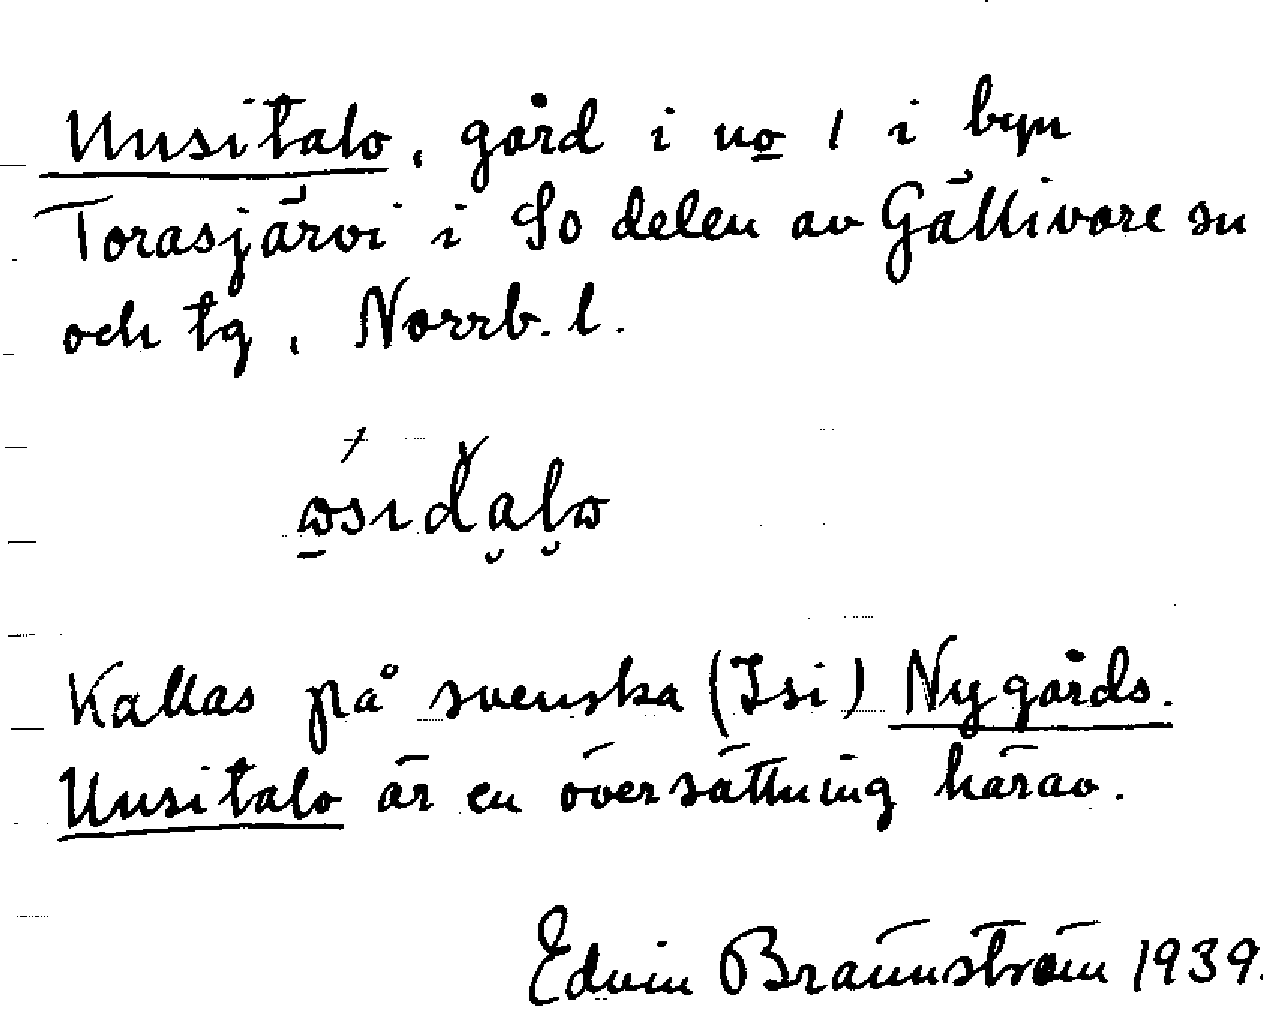 Uusitalo, gård i no 1 i byn
Torasjärvi i So delen av Gällivare sn
och tg, Norrb. l.
Kallas på svenska (Isi) Nygårds.
Uusitalo är en översättning härav.
Edvin Brännström 1939.